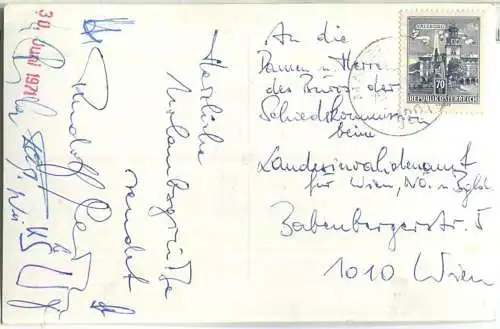 30. Juni 1971
Herzliche
Urlaubsgrüße
sendet
Rudolf
An die
Damen u. Herren
des Büros der
Schiedskommission
beim
Landesinvalidenamt
für Wien, NÖ. u. Bgld.
Babenbergerstr. 5
1010 Wien
SALZBURG
70
REPUBLIK ÖSTERREICH